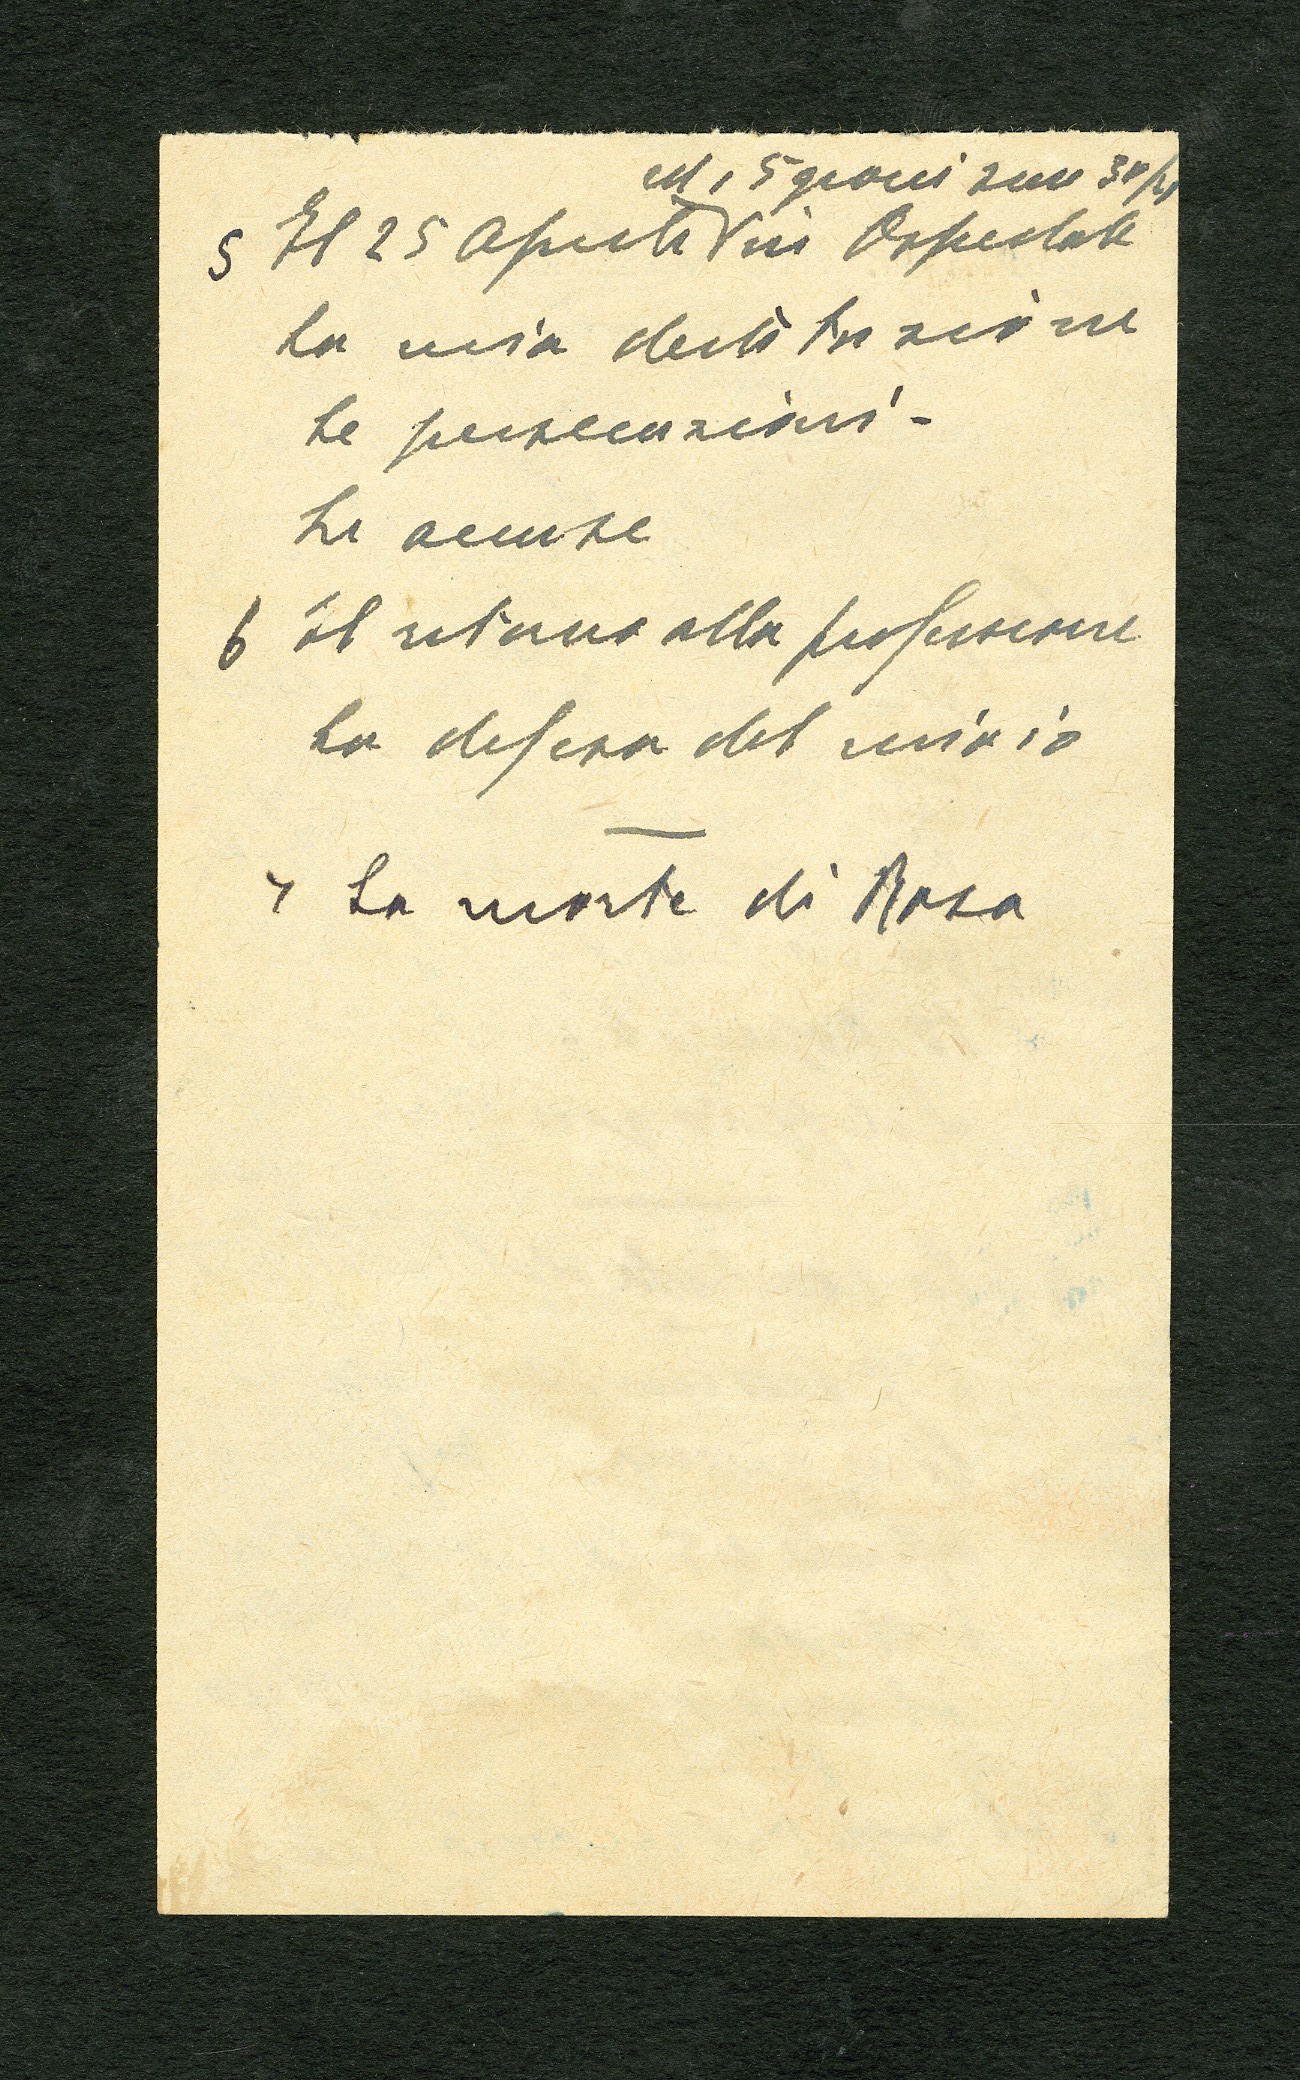 ed i 5 giorni sino 30/4
5 Il 25 Aprile in Ospedale
La mia destituzione
Le persecuzioni -
Le accuse
6 Il ritorno alla professione
La difesa del
7 La morte di Rosa